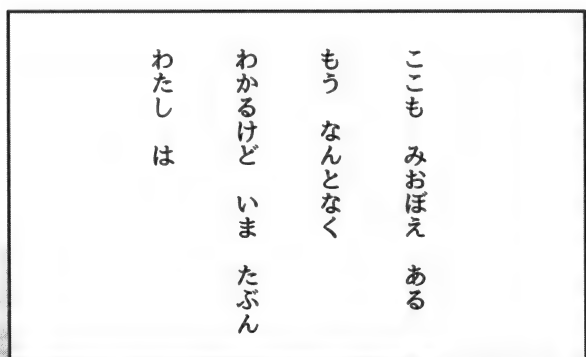 ここも　みおぼえ　ある
もう　なんとなく
わかるけど　いま　たぶん
わたし　は